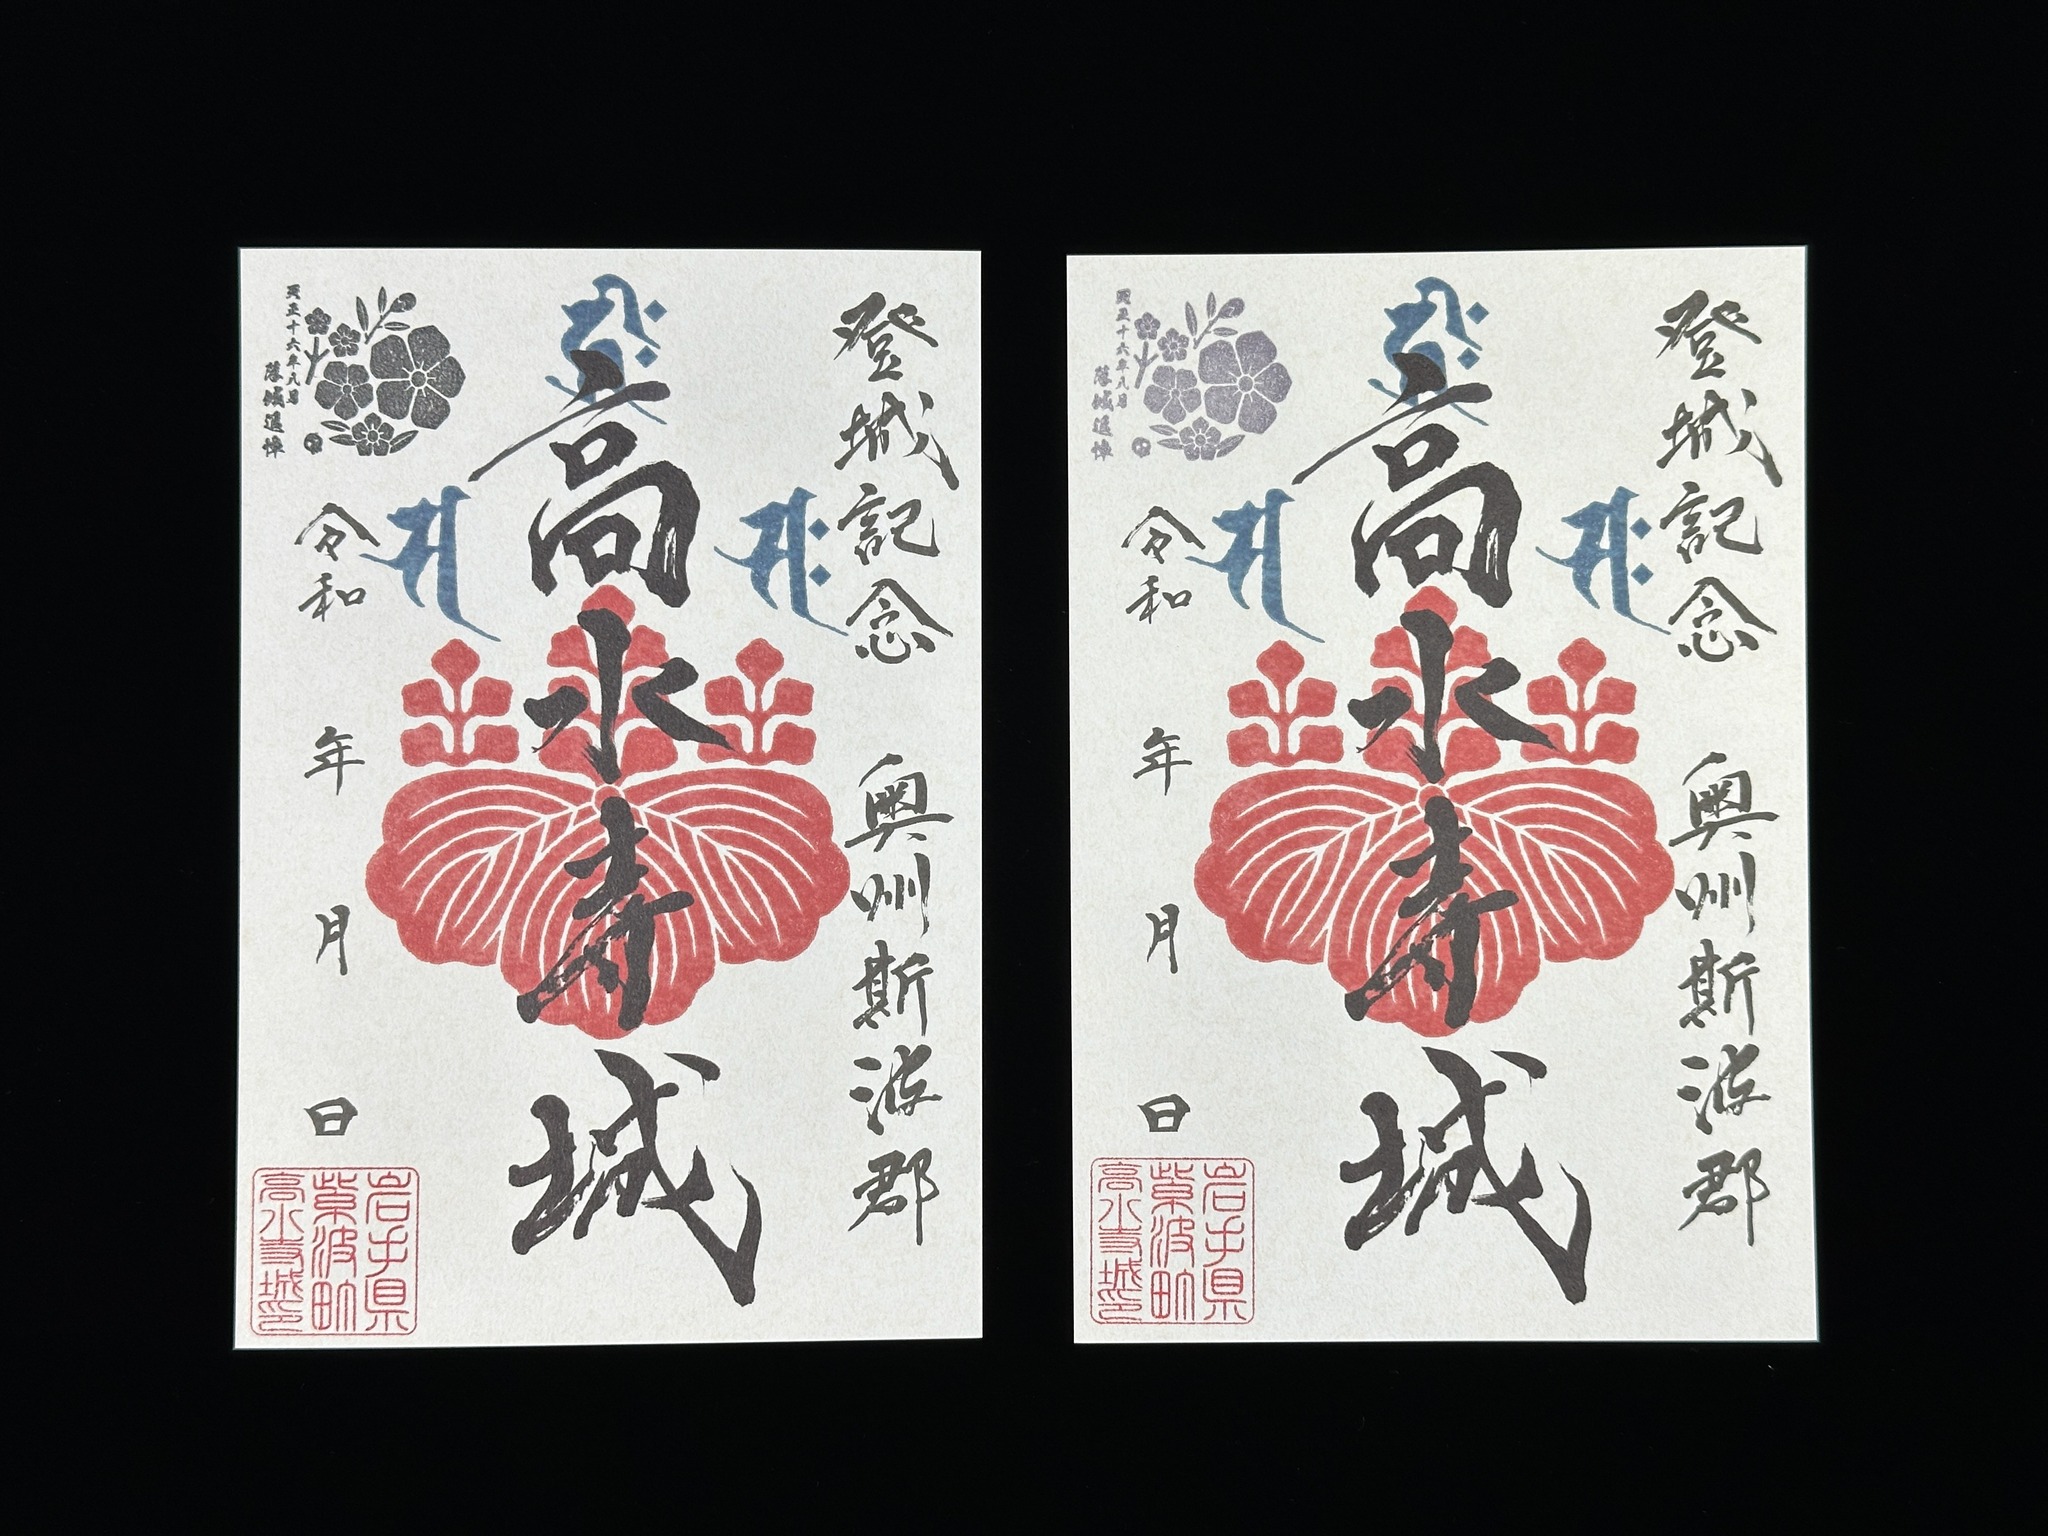 登城記念 奥州斯波郡
高水寺城
天正十六年八月
落城追悼
令和 年 月 日
岩手県
紫波町
高水寺城印
登城記念 奥州斯波郡
高水寺城
天正十六年八月
落城追悼
令和 年 月 日
岩手県
紫波町
高水寺城印